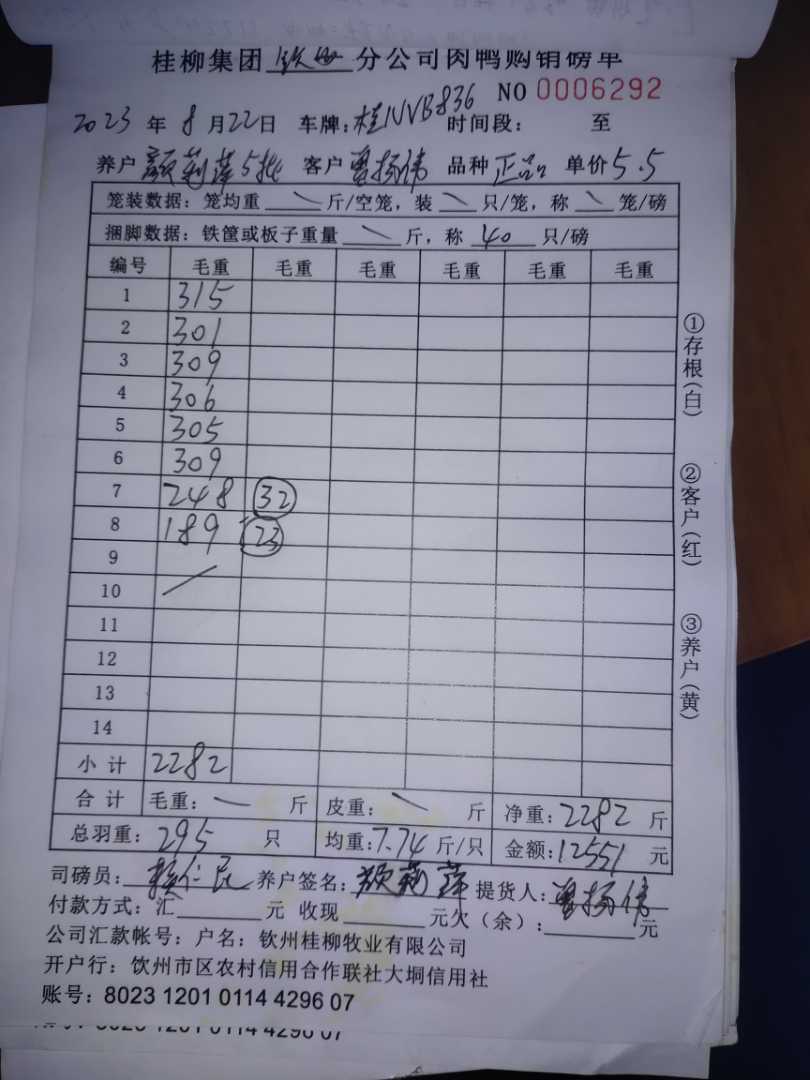 桂柳集团 钦州 分公司肉鸭购销磅单
NO 0006292
2023 年 8 月 22 日 车牌:桂NVB836 时间段: 至
养户 颜莉萍5批 客户 曾扬伟 品种 正品 单价 5.5
笼装数据:笼均重 \ 斤/空笼,装 \ 只/笼,称 \ 笼/磅
捆脚数据:铁筐或板子重量 \ 斤,称 40 只/磅
编号 毛重 毛重 毛重 毛重 毛重 毛重
1 315
2 301
3 309
4 306
5 305
6 309
7 248 32
8 189 23
9
10
11
12
13
14
小计 2282
合计 毛重: 斤 皮重: 斤 净重:2282 斤
总羽重:295 只 均重:7.74 斤/只 金额:12551 元
司磅员: 仁民 养户签名:颜莉萍 提货人:曾扬伟
付款方式:汇 元 收现 元欠(余): 元
公司汇款帐号:户名:钦州桂柳牧业有限公司
开户行:钦州市区农村信用合作联社大垌信用社
账号:8023 1201 0114 4296 07
①存根(白)
②客户(红)
③养户(黄)
8023 1201 0114 4296 07